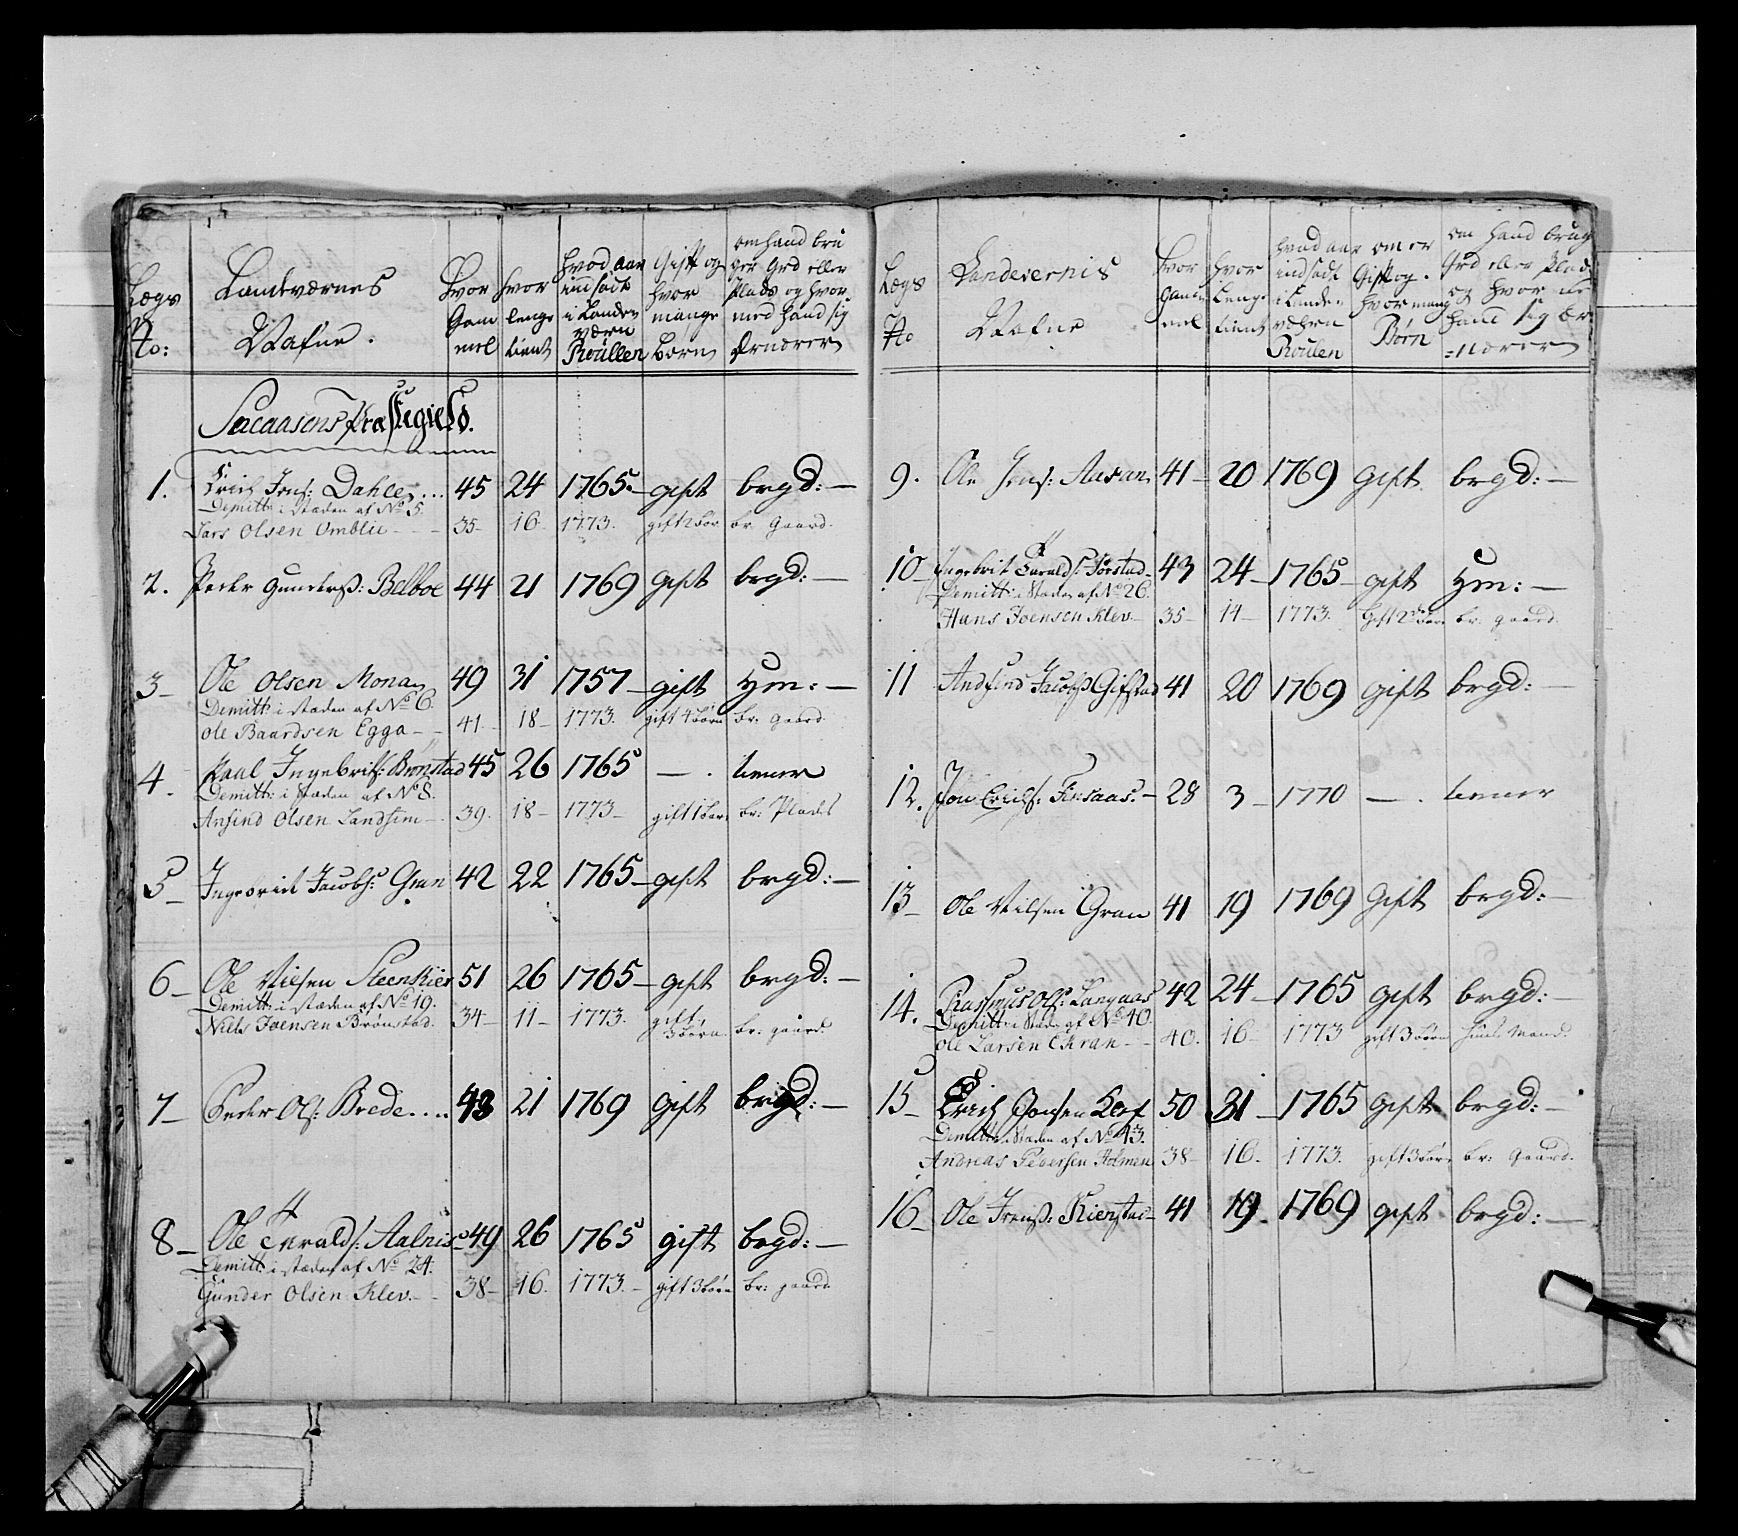 Lægs No:
Landværnes Nafne.
hvor Gam mel
hvor lenge tient
hvad aar indsadt i Landeværn Roullen
Gift og hvor mange børn
om hand bruger Grd eller Plads og hvor med hand sig Ernærer
Snaasens Præstegield.
1. Erich Jens: Dahle.... 45 24 1765 – gift brgd: –
Demitt: i stæden af No 5.
Lars Olsen Omblie – 35 – 16 – 1773. gift 2 bør br. Gaard.
2. Peder Gunders: Belboe 44 21 1769 gift brgd: –
3 – Ole Olsen Mona 49 31 1757 – gift Hm: –
Demitt: i stæden af No 6.
Ole Baardsen Egga – 41 – 18 – 1773. gift 4 børn br: gaard
4. Paul Ingebris: Brønstad 45 26 1765 – . tiener
Demitt: i stæden af No 8.
Anfind Olsen Landsem – 39. 18 – 1773 – gift 1 barn br: Plads
5 – Ingebrict Jacobs: Gran 42 22 1765 – gift brgd: –
6 – Ole Nilsen Steenkier 51 26 1765 – gift brgd: –
Demitt: i stæden af No 19.
Niels Joensen Brønstad. 34 – 11 – 1773. gift, 3 børn br: gaard.
7 – Peder Ols: Brede.... 43 21 1769 gift brgd: –
8 – Ole Tarald s: Aalnis 49 26 1765 gift brgd: –
Demitt: i stæden af No 24.
Gunder Olsen Klev. – 38 – 16. 1773. – gift 3 børn br: gaard
Lægs No
Landevernis Nafne
hvor Gam mel
hvor Lenge tient
hvad aar indsadt i Landeværn Roulen
om er Gift og hvor mang Børn
om hand brug Grd eller Plads og hvor med hand sig Er=nærer
9. Ole Jens: Aasan 41 – 20 1769 gift brgd: –
10 – Ingebrit Tarald s: Førstad – 43 24 – 1765 – gift Hm: –
Demitt: i Stæden af No 26.
Hans Joensen Klev. – 35 – 14 – 1773. Gift 2 børn br. gaard.
11 Andfind Jacobs: Gifstad 41 20 1769 gift brgd: –
12. Jon Erichs: Finsaas. – 28 3 – 1770 – . tiener
13 – Ole Nilsen Gran 41 19 1769 Gift brgd: –
14. Rasmus Ols: Langaas 42 24 – 1765 gift brgd: –
Demitt: i Stæden af No 40.
Ole Larsen Ekran – 40. 16 – 1773 gift 3 børn Huus Mand.
15 – Erich Jonsen Kleef 50 31 – 1765 gift brgd: –
Demitt: i Stæden af No 43.
Andreas Pedersen Holmen 38 – 16. 1773. gift 3 børn br: Gaard.
16 – Ole Jrens: Kierstad – 41 19 – 1769 gift brgd: –